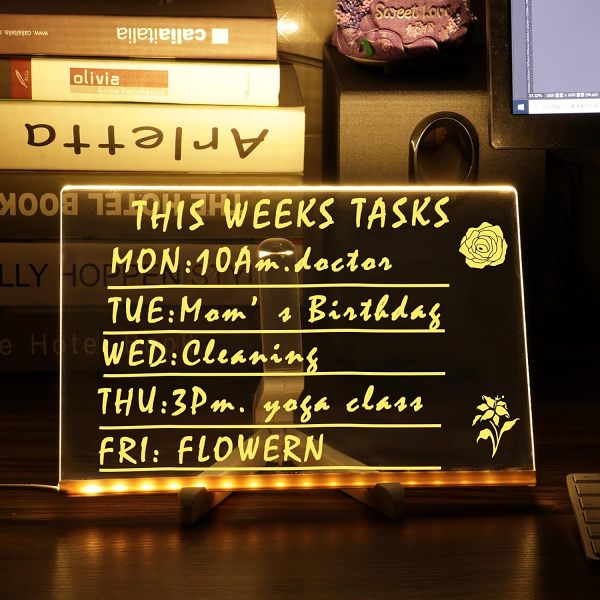 Sweet Love
www.callaitalia.com
callaitalia
olivia
Arletta
THE HOTEL BOOK
LLY HOPPEN STYL
e Hotel
THIS WEEKS TASKS
MON:10Am.doctor
TUE:Mom's Birthdag
WED:Cleaning
THU:3Pm. yoga class
FRI: FLOWERN